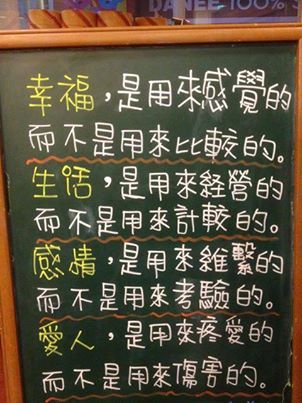 DANEE 100%
幸福，是用來感覺的
而不是用來比較的。
生活，是用來経營的
而不是用來計較的。
感情，是用來維繫的
而不是用來考驗的。
愛人，是用來疼愛的
而不是用來傷害的。